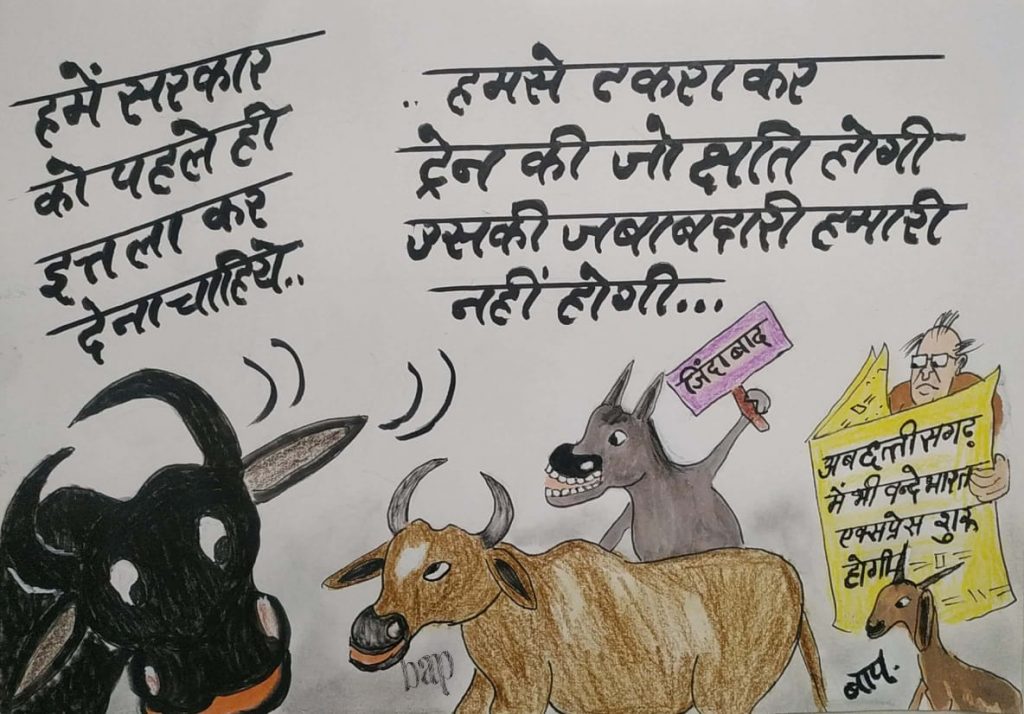 हमें सरकार
को पहले ही
इत्तला कर
देना चाहिये..
.. हमसे टकरा कर
ट्रेन की जो क्षति होगी
उसकी जबाबदारी हमारी
नहीं होगी...
जिंदाबाद
अब छत्तीसगढ़
में भी वन्दे भारत
एक्सप्रेस शुरू
होगी
bap
बाप.